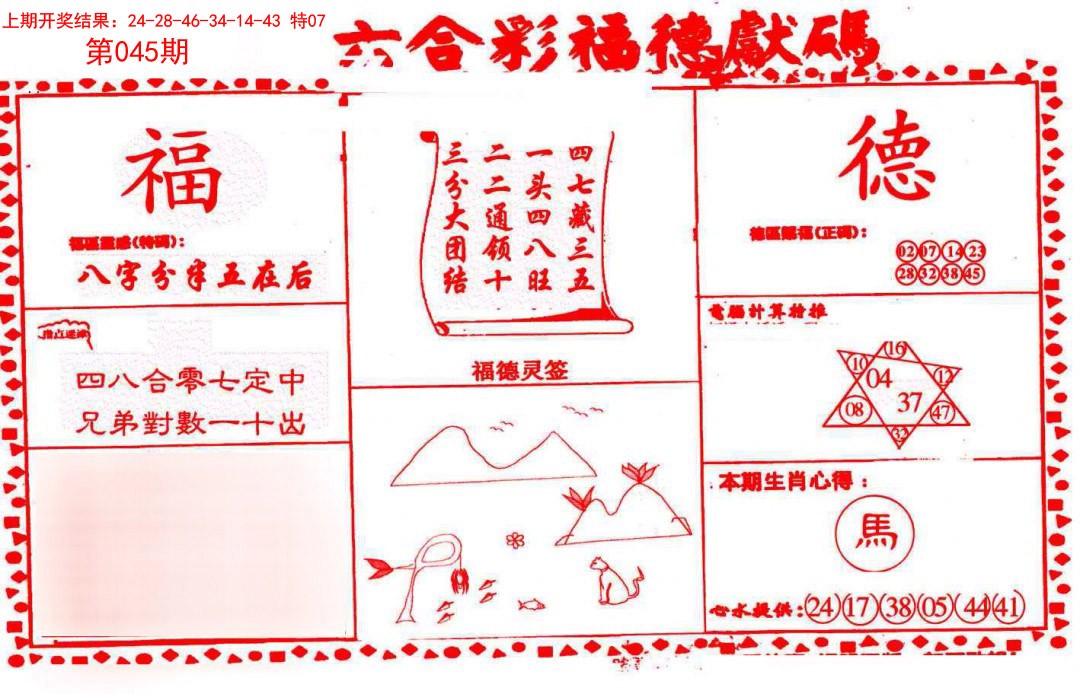 上期开奖结果：24-28-46-34-14-43 特07
第045期
六合彩福德獻碼
福
福區靈感(特碼)：
八字分半五在后
指点迷津
四八合零七定中
兄弟對數一十出
四七藏三五
一头四八旺
二二通领十
三分大团结
福德灵签
德
德區賜福(正碼)：
02 07 14 23
28 32 38 45
電腦計算於推
16
10
04
12
08
37
47
32
本期生肖心得：
馬
心水提供：24 17 38 05 44 41